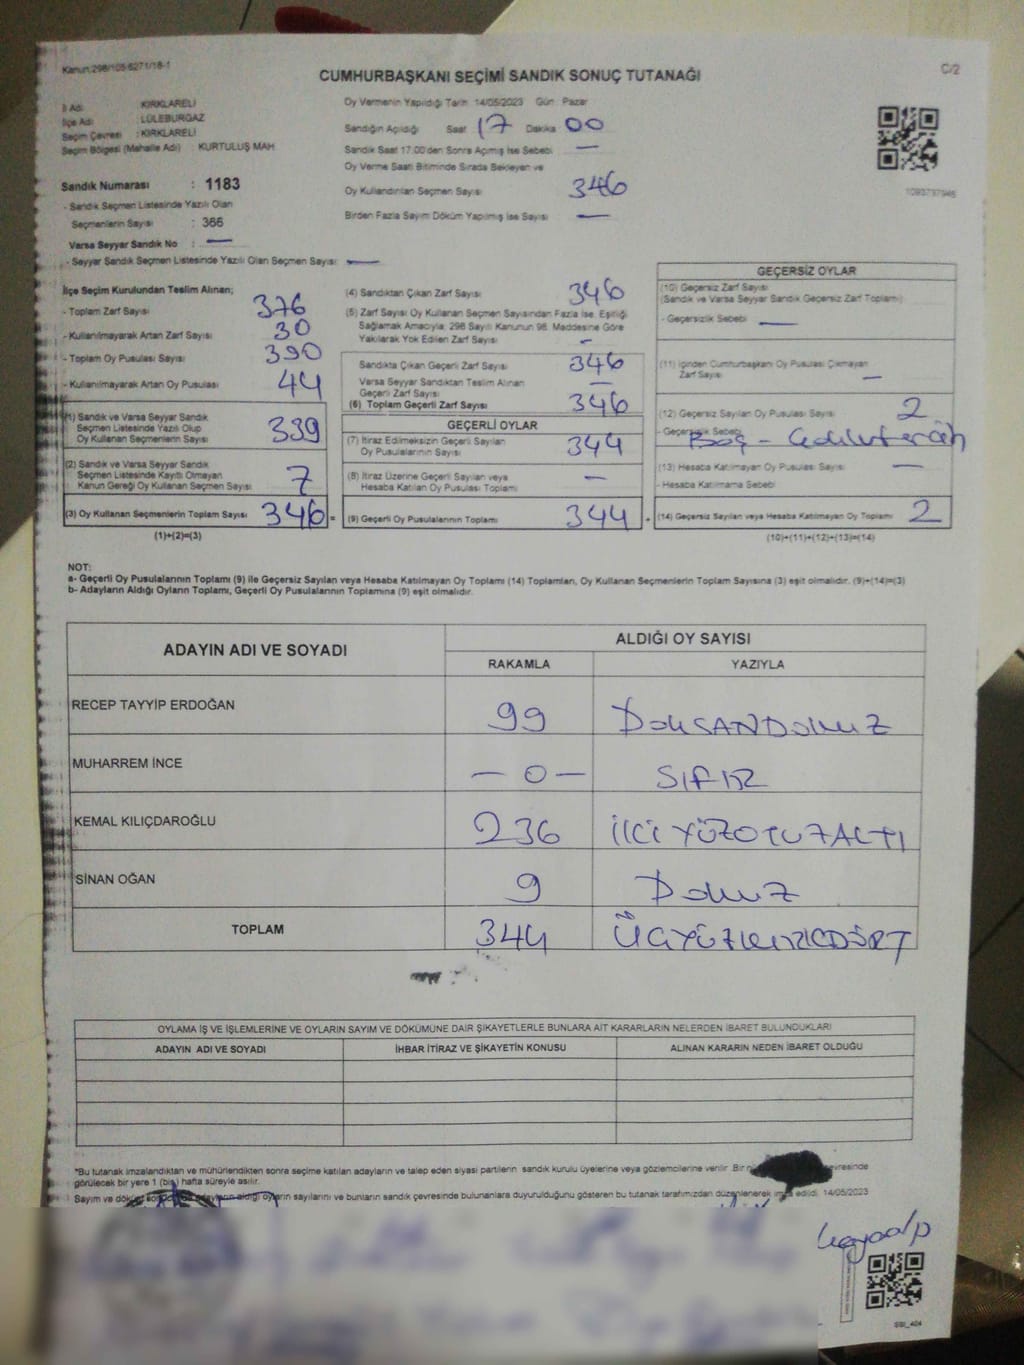 Kanun:298/105-6271/18-1
C/2
CUMHURBAŞKANI SEÇİMİ SANDIK SONUÇ TUTANAĞI
İl Adı : KIRKLARELİ
İlçe Adı : LÜLEBURGAZ
Seçim Çevresi : KIRKLARELİ
Seçim Bölgesi (Mahalle Adı) : KURTULUŞ MAH
Sandık Numarası : 1183
- Sandık Seçmen Listesinde Yazılı Olan
Seçmenlerin Sayısı : 366
Varsa Seyyar Sandık No : —
- Seyyar Sandık Seçmen Listesinde Yazılı Olan Seçmen Sayısı: —
Oy Vermenin Yapıldığı Tarih 14/05/2023 Gün Pazar
Sandığın Açıldığı Saat 17 Dakika 00
Sandık Saat 17.00'den Sonra Açılmış İse Sebebi —
Oy Verme Saati Bitiminde Sırada Bekleyen ve
Oy Kullandırılan Seçmen Sayısı 346
Birden Fazla Sayım Döküm Yapılmış İse Sayısı —
1093737946
İlçe Seçim Kurulundan Teslim Alınan;
- Toplam Zarf Sayısı 376
- Kullanılmayarak Artan Zarf Sayısı 30
- Toplam Oy Pusulası Sayısı 390
- Kullanılmayarak Artan Oy Pusulası 44
(1) Sandık ve Varsa Seyyar Sandık
Seçmen Listesinde Yazılı Olup
Oy Kullanan Seçmenlerin Sayısı 339
(2) Sandık ve Varsa Seyyar Sandık
Seçmen Listesinde Kayıtlı Olmayan
Kanun Gereği Oy Kullanan Seçmen Sayısı 7
(3) Oy Kullanan Seçmenlerin Toplam Sayısı 346 =
(1)+(2)=(3)
(4) Sandıktan Çıkan Zarf Sayısı 346
(5) Zarf Sayısı Oy Kullanan Seçmen Sayısından Fazla İse, Eşitliği
Sağlamak Amacıyla; 298 Sayılı Kanunun 98. Maddesine Göre
Yakılarak Yok Edilen Zarf Sayısı —
Sandıkta Çıkan Geçerli Zarf Sayısı 346
Varsa Seyyar Sandıktan Teslim Alınan
Geçerli Zarf Sayısı —
(6) Toplam Geçerli Zarf Sayısı 346
GEÇERLİ OYLAR
(7) İtiraz Edilmeksizin Geçerli Sayılan
Oy Pusulalarının Sayısı 344
(8) İtiraz Üzerine Geçerli Sayılan veya
Hesaba Katılan Oy Pusulası Toplamı —
(9) Geçerli Oy Pusulalarının Toplamı 344 +
GEÇERSİZ OYLAR
(10) Geçersiz Zarf Sayısı
(Sandık ve Varsa Seyyar Sandık Geçersiz Zarf Toplamı)
- Geçersizlik Sebebi —
(11) İçinden Cumhurbaşkanı Oy Pusulası Çıkmayan
Zarf Sayısı —
(12) Geçersiz Sayılan Oy Pusulası Sayısı 2
- Geçersizlik Sebebi Boş -
(13) Hesaba Katılmayan Oy Pusulası Sayısı —
- Hesaba Katılmama Sebebi
(14) Geçersiz Sayılan veya Hesaba Katılmayan Oy Toplamı 2
(10)+(11)+(12)+(13)=(14)
NOT:
a- Geçerli Oy Pusulalarının Toplamı (9) ile Geçersiz Sayılan veya Hesaba Katılmayan Oy Toplamı (14) Toplamları, Oy Kullanan Seçmenlerin Toplam Sayısına (3) eşit olmalıdır. (9)+(14)=(3)
b- Adayların Aldığı Oyların Toplamı, Geçerli Oy Pusulalarının Toplamına (9) eşit olmalıdır.
ADAYIN ADI VE SOYADI
ALDIĞI OY SAYISI
RAKAMLA YAZIYLA
RECEP TAYYİP ERDOĞAN 99 DOKSANDOKUZ
MUHARREM İNCE — 0 — SIFIR
KEMAL KILIÇDAROĞLU 236 İKİYÜZOTUZALTI
SİNAN OĞAN 9 DOKUZ
TOPLAM 344 ÜÇYÜZKIRKDÖRT
OYLAMA İŞ VE İŞLEMLERİNE VE OYLARIN SAYIM VE DÖKÜMÜNE DAİR ŞİKAYETLERLE BUNLARA AİT KARARLARIN NELERDEN İBARET BULUNDUKLARI
ADAYIN ADI VE SOYADI İHBAR İTİRAZ VE ŞİKAYETİN KONUSU ALINAN KARARIN NEDEN İBARET OLDUĞU
*Bu tutanak imzalandıktan ve mühürlendikten sonra seçime katılan adayların ve talep eden siyasi partilerin sandık kurulu üyelerine veya gözlemcilerine verilir. Bir çevresinde
görülecek bir yere 1 (bir) hafta süreyle asılır.
Sayım ve döküm adayların aldığı oyların sayılarını ve bunların sandık çevresinde bulunanlara duyurulduğunu gösteren bu tutanak tarafımızdan düzenlenerek imza edildi. 14/05/2023
SSI_404